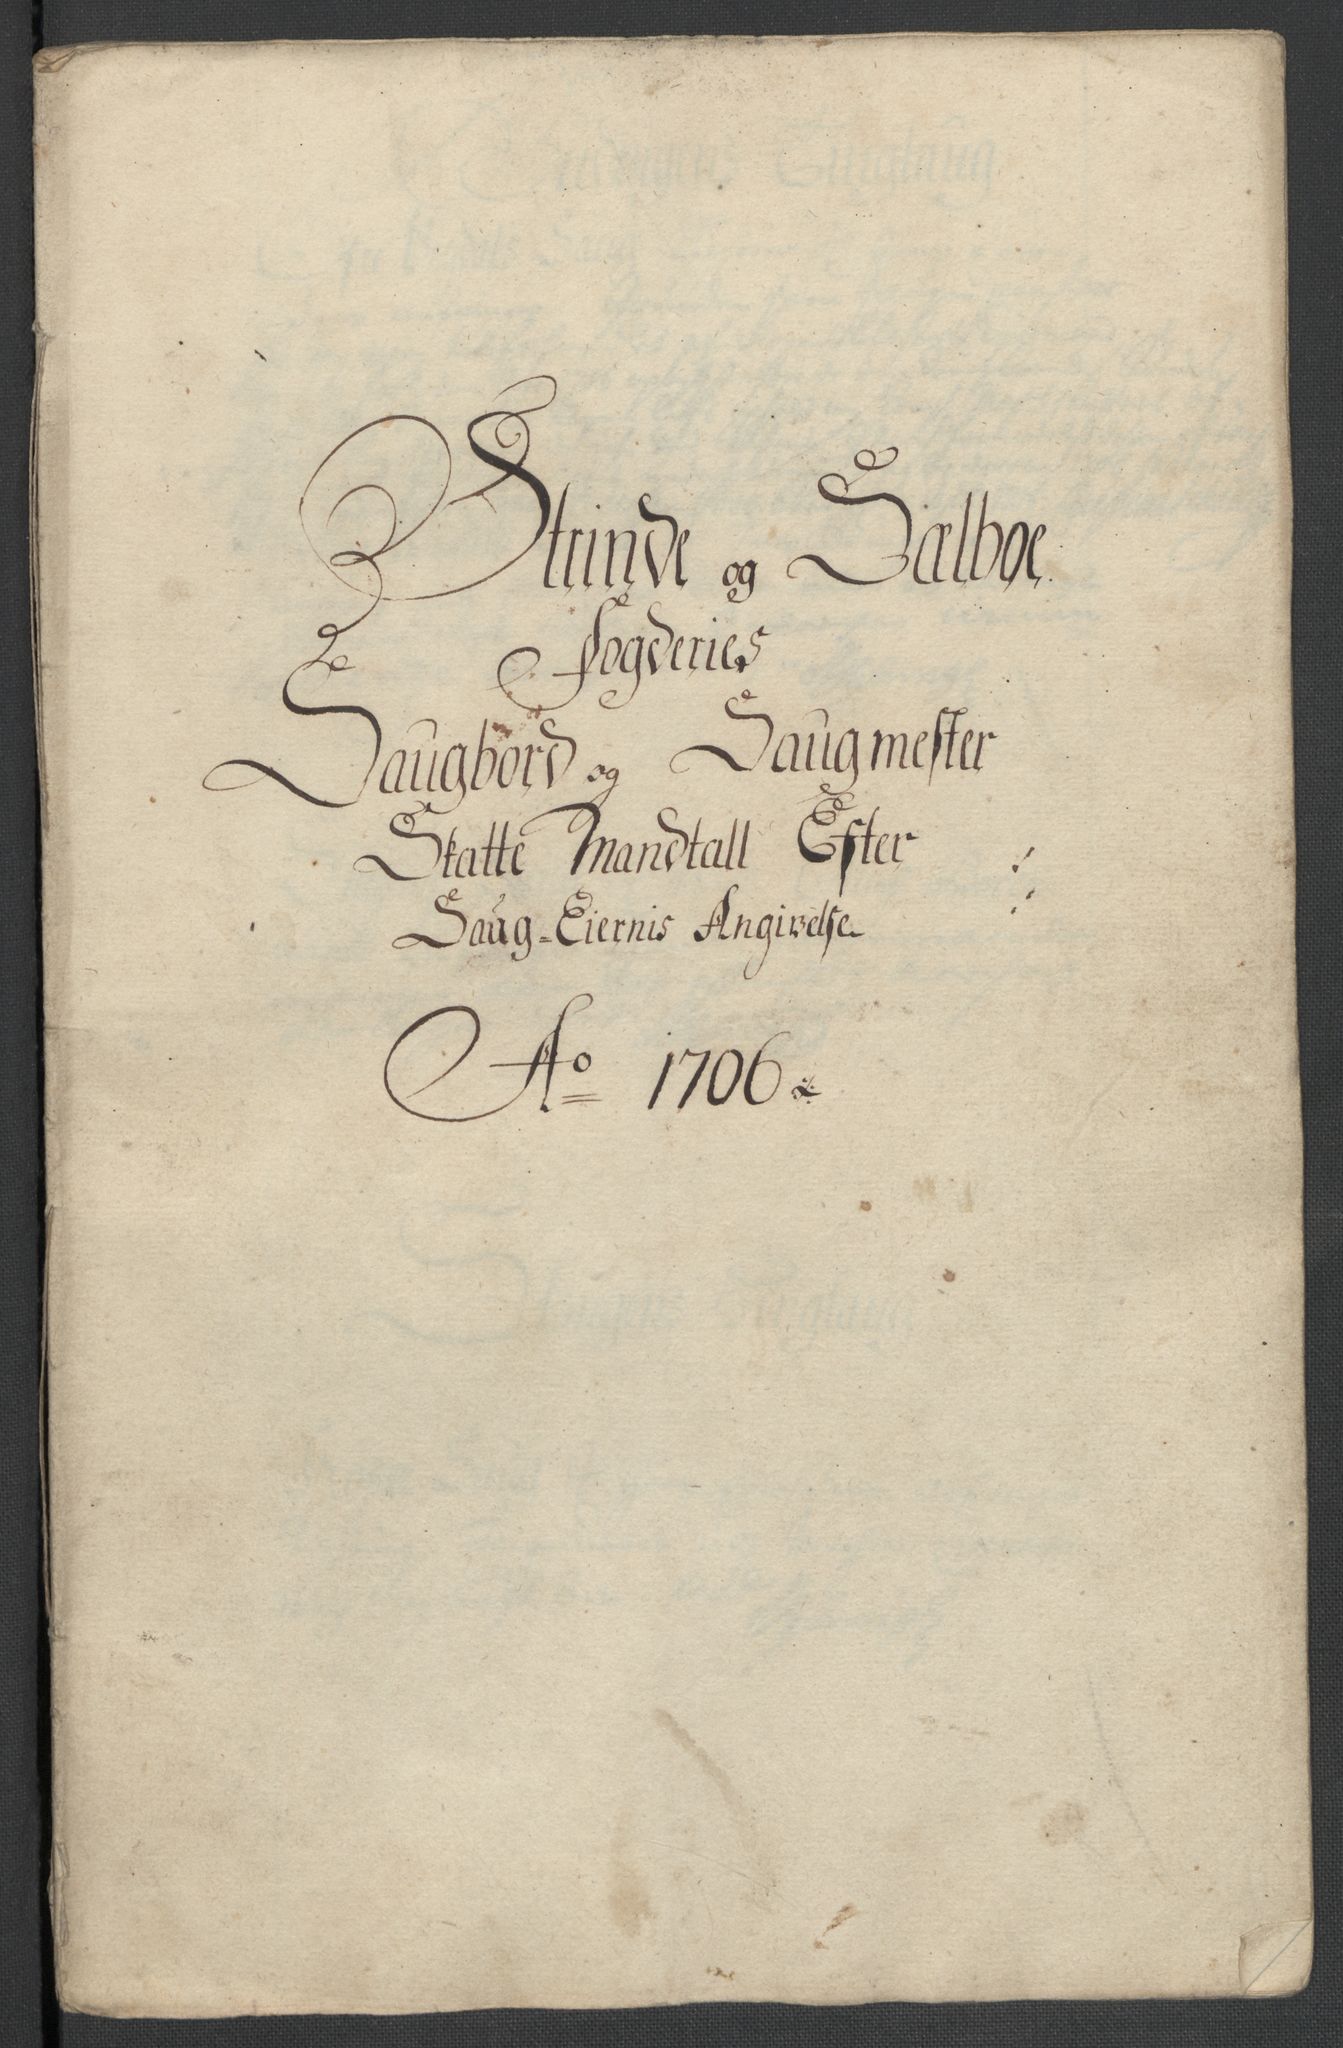 Strinde og Sælboe
Fogderies
Saugbord og Saugmester
Skatte Mandtall Efter
Saug-Eiernis Angivelse
Ao 1706